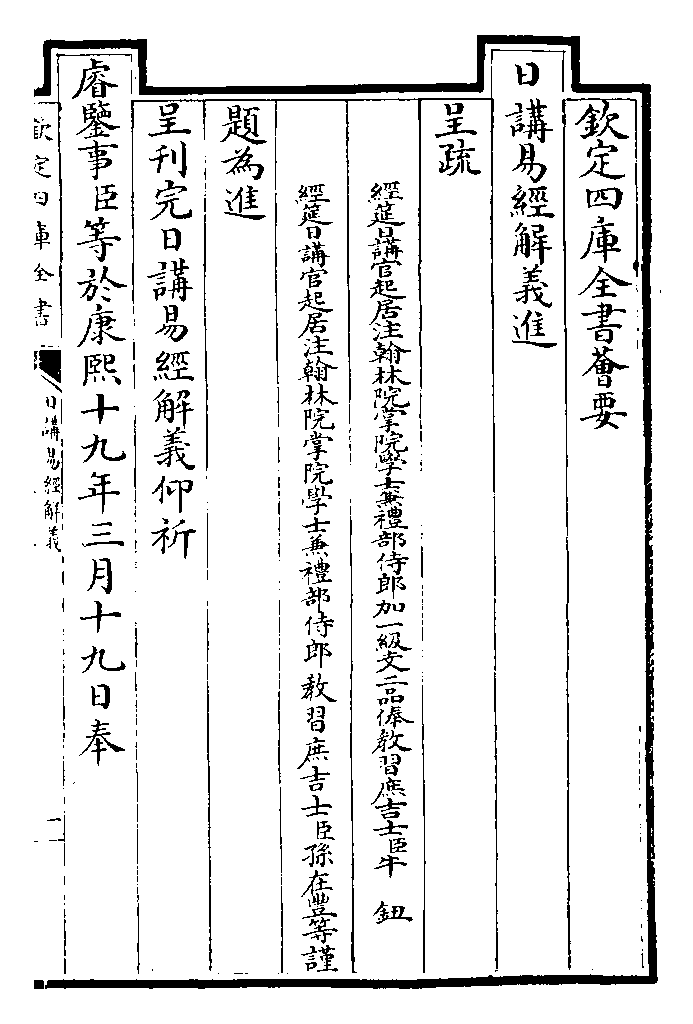 欽定四庫全書薈要
日講易經解義進
呈疏
經筵日講官起居注翰林院掌院學士兼禮部侍郎加一級文二品俸教習庶吉士臣牛 鈕
經筵日講官起居注翰林院掌院學士兼禮部侍郎教習庶吉士臣孫在豐等謹
題為進
呈刊完日講易經解義仰祈
睿鑒事臣等於康熙十九年三月十九日奉
欽定四庫全書
日講易經解義